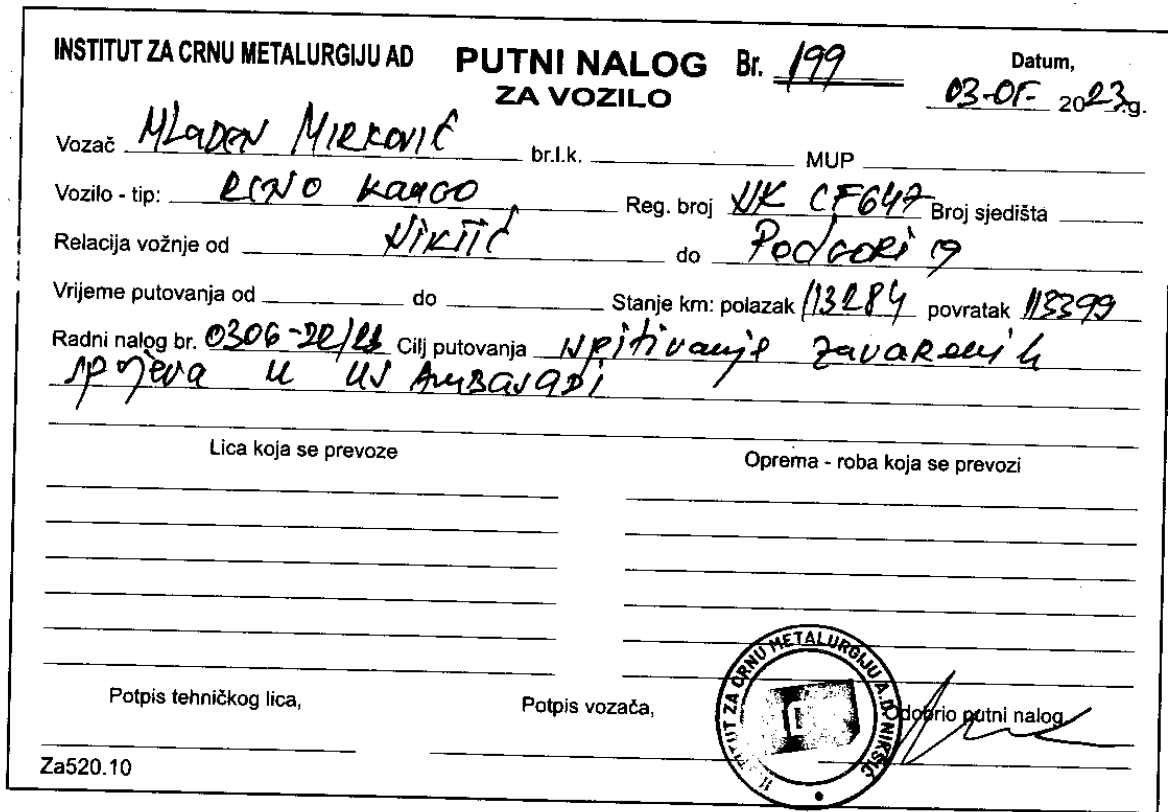 INSTITUT ZA CRNU METALURGIJU AD PUTNI NALOG Br. 199 Datum,
ZA VOZILO 03-05- 2023.g.
Vozač Mladen Mirković br.l.k. MUP
Vozilo - tip: RENO KANGO Reg. broj NK CF647 Broj sjedišta
Relacija vožnje od Nikšić do Podgorica
Vrijeme putovanja od do Stanje km: polazak 113284 povratak 113399
Radni nalog br. 0306-22/23 Cilj putovanja Ispitivanje zavarenih
spojeva u US Ambasadi
Lica koja se prevoze Oprema - roba koja se prevozi
Potpis tehničkog lica, Potpis vozača, Odobrio putni nalog
ZA CRNU METALURGIJU A.D. NIKŠIĆ
Za520.10